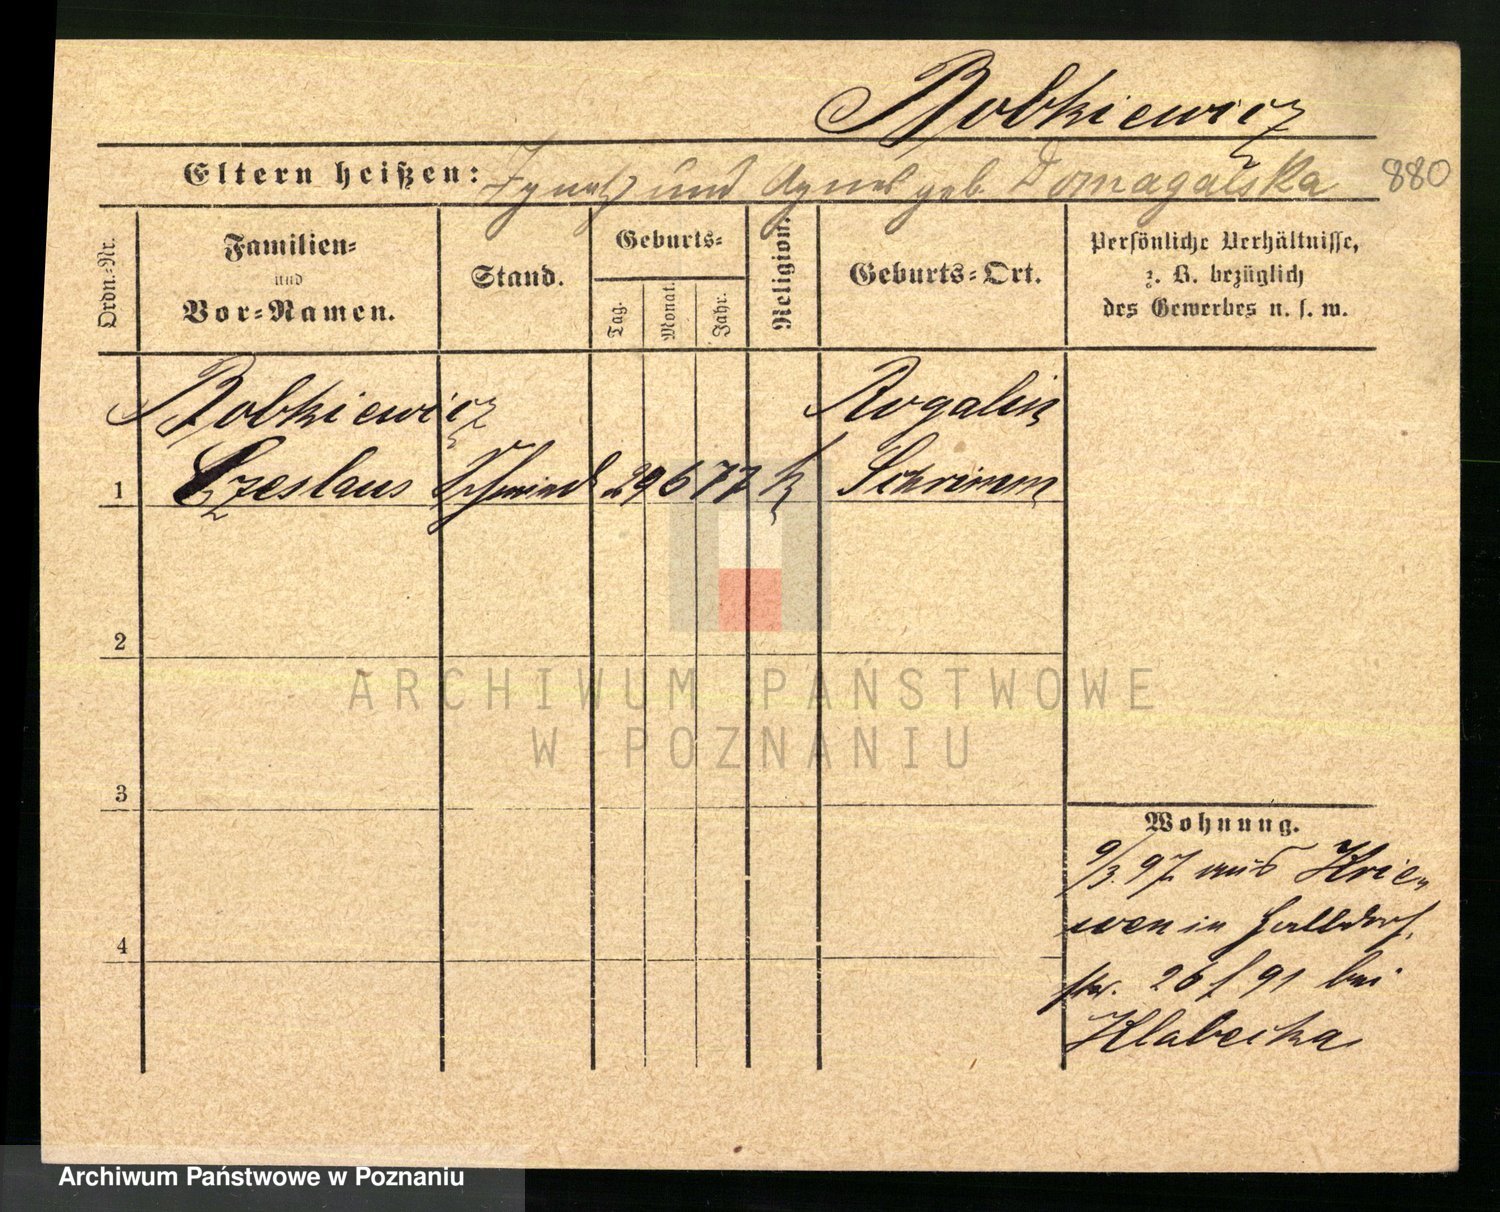 Bobkiewicz
Eltern heißen: Ignatz und Agnes geb. Domagalska 880
Ordn.-Nr.
Familien-
und
Vor-Namen.
Stand.
Geburts-
Tag.
Monat.
Jahr.
Religion.
Geburts-Ort.
Persönliche Verhältnisse,
z. B. bezüglich
des Gewerbes u. s. w.
Bobkiewicz Rogalin
1 Czeslaus Schmied 29 6 77 k Schrimm
2
3
4
Wohnung.
9/3. 97 aus Krie-
wen in Halldorf-
str. 26 f 91 bei
ARCHIWUM PAŃSTWOWE
W POZNANIU
Archiwum Państwowe w Poznaniu